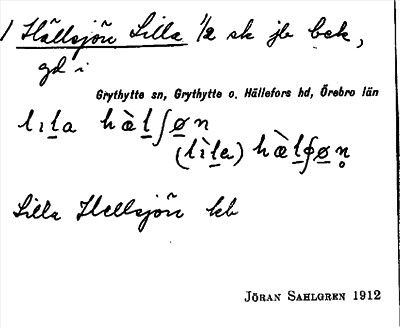 1 Hällsjön Lilla 1/2 sk jb bek,
gd i
Grythytte sn, Grythytte o. Hällefors hd, Örebro län
lıla hæ̀lʃøn
(lìla) hæ̀lʃøn̥
Lilla Hellsjön kb
JÖRAN SAHLGREN 1912